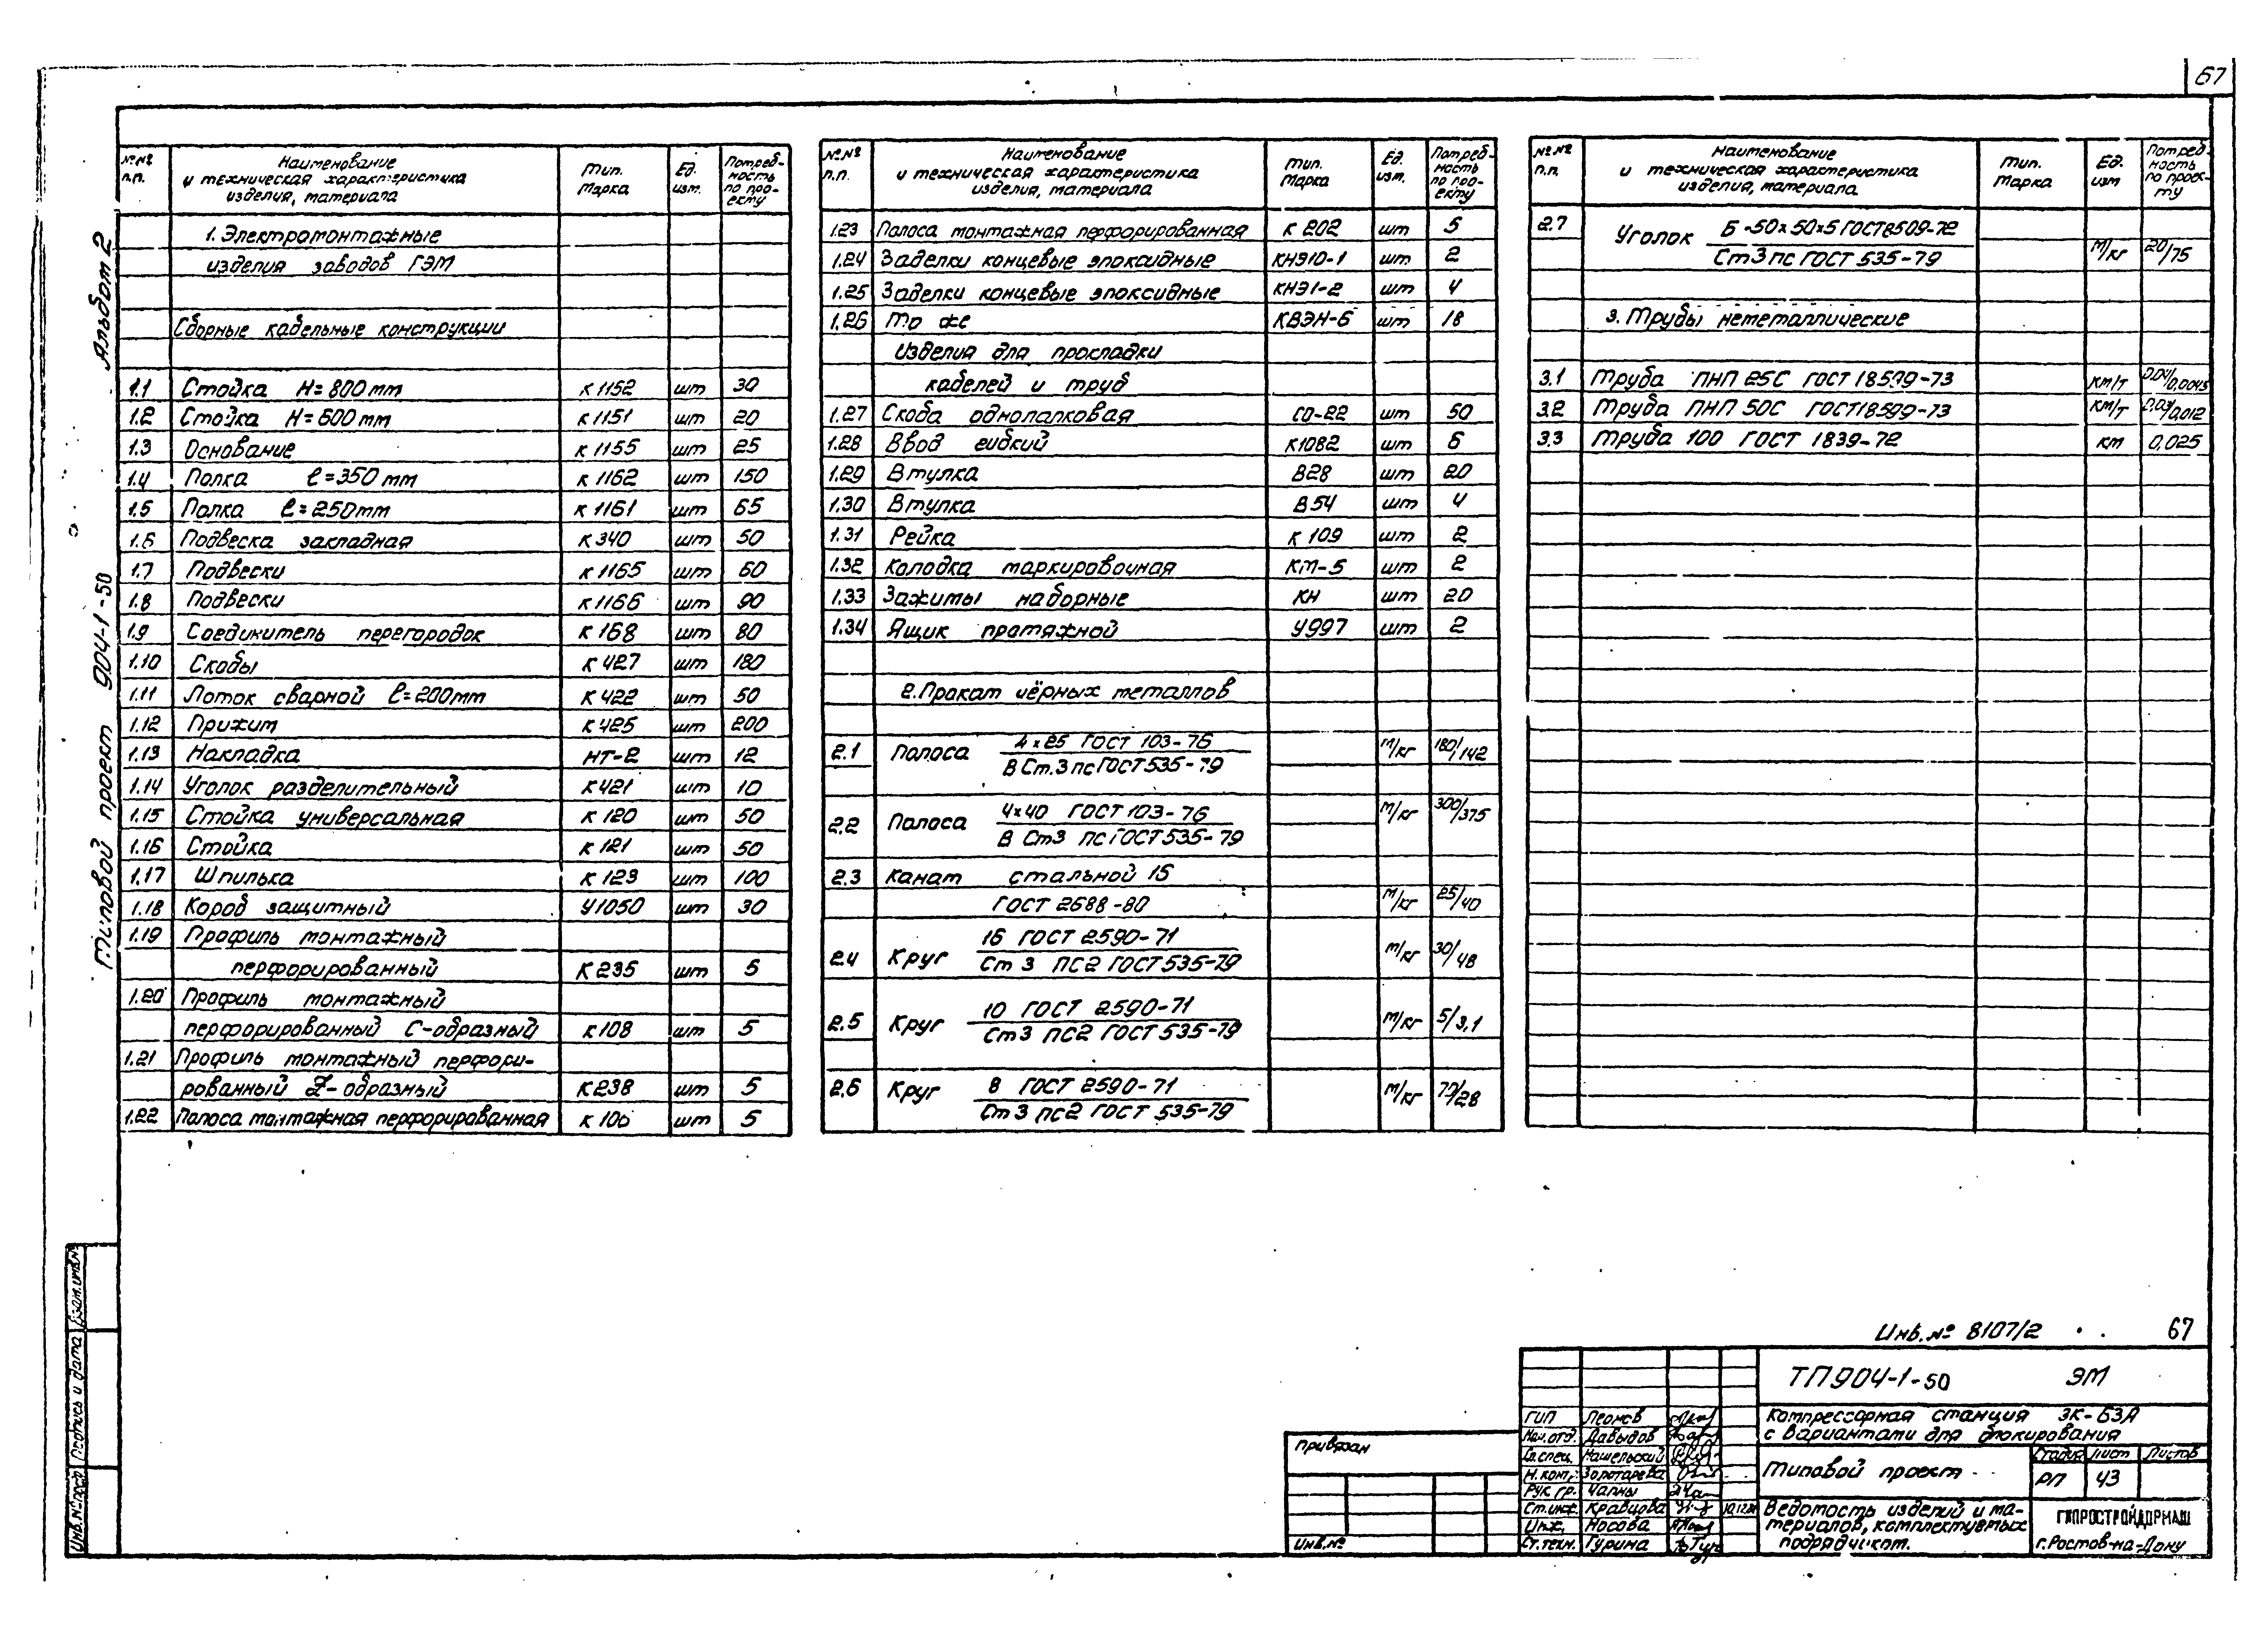 67
Альбом 2
Типовой проект 904-1-50
№№ п.п. Наименование и техническая характеристика изделия, материала Тип. Марка Ед. изм. Потребность по проекту
1. Электромонтажные
изделия заводов ГЭМ
Сборные кабельные конструкции
1.1 Стойка H=800мм К1152 шт 30
1.2 Стойка H=600мм К1151 шт 20
1.3 Основание К1155 шт 25
1.4 Полка ℓ=350мм К1162 шт 150
1.5 Полка ℓ=250мм К1161 шт 65
1.6 Подвеска закладная К340 шт 50
1.7 Подвески К1165 шт 60
1.8 Подвески К1166 шт 90
1.9 Соединитель перегородок К168 шт 80
1.10 Скобы К427 шт 180
1.11 Лоток сварной ℓ=200мм К422 шт 50
1.12 Прижим К425 шт 200
1.13 Накладка НТ-2 шт 12
1.14 Уголок разделительный К421 шт 10
1.15 Стойка универсальная К120 шт 50
1.16 Стойка К121 шт 50
1.17 Шпилька К123 шт 100
1.18 Короб защитный У1050 шт 30
1.19 Профиль монтажный
перфорированный К235 шт 5
1.20 Профиль монтажный
перфорированный С-образный К108 шт 5
1.21 Профиль монтажный перфори-
рованный Z-образный К238 шт 5
1.22 Полоса монтажная перфорированная К106 шт 5
№№ п.п. Наименование и техническая характеристика изделия, материала Тип. Марка Ед. изм. Потреб-ность по про-екту
1.23 Полоса монтажная перфорированная К202 шт 5
1.24 Заделки концевые эпоксидные КНЭ10-1 шт 2
1.25 Заделки концевые эпоксидные КНЭ1-2 шт 4
1.26 То же КВЭН-6 шт 18
Изделия для прокладки
кабелей и труб
1.27 Скоба однолапковая СО-22 шт 50
1.28 Ввод гибкий К1082 шт 6
1.29 Втулка В28 шт 20
1.30 Втулка В54 шт 4
1.31 Рейка К109 шт 2
1.32 Колодка маркировочная КМ-5 шт 2
1.33 Зажимы наборные КН шт 20
1.34 Ящик протяжной У997 шт 2
2. Прокат чёрных металлов
2.1 Полоса 4×25 ГОСТ 103-76 м/кг 180/142
В Ст.3 пс ГОСТ 535-79
2.2 Полоса 4×40 ГОСТ 103-76 м/кг 300/375
В Ст3 пс ГОСТ 535-79
2.3 Канат стальной 15
ГОСТ 2688-80 м/кг 25/40
2.4 Круг 16 ГОСТ 2590-71 м/кг 30/48
Ст 3 ПС2 ГОСТ 535-79
2.5 Круг 10 ГОСТ 2590-71 м/кг 5/3,1
Ст3 ПС2 ГОСТ 535-79
2.6 Круг 8 ГОСТ 2590-71 м/кг 70/28
Ст 3 пс2 ГОСТ 535-79
№№ п.п. Наименование и техническая характеристика изделия, материала Тип. Марка Ед. изм Потреб-ность по проек-ту
2.7 Уголок Б-50×50×5 ГОСТ 8509-72 м/кг 20/75
Ст3пс ГОСТ 535-79
3. Трубы неметаллические
3.1 Труба ПНП 25С ГОСТ 18599-73 км/т 0,04/0,0045
3.2 Труба ПНП 50С ГОСТ 18599-73 км/т 0,03/0,012
3.3 Труба 100 ГОСТ 1839-72 км 0,025
Взам.инв.№
Подпись и дата
Инв.№ подл.
Инв.№ 8107/2 67
Привязан
Инв.№
ТП904-1-50 ЭМ
ГИП Леонов
Нач.отд. Давыдов
Гл.спец. Нашельский
Н.конт. Золотарева
Рук.гр. Чапны
Ст.инж. Кравцова
Инж. Носова
Ст.техн. Гурина
Компрессорная станция ЭК-63А
с вариантами для блокирования
Типовой проект
Стадия Лист Листов
РП 43
Ведомость изделий и ма-
териалов, комплектуемых
подрядчиком.
ГИПРОСТРОЙДОРМАШ
г.Ростов-на-Дону